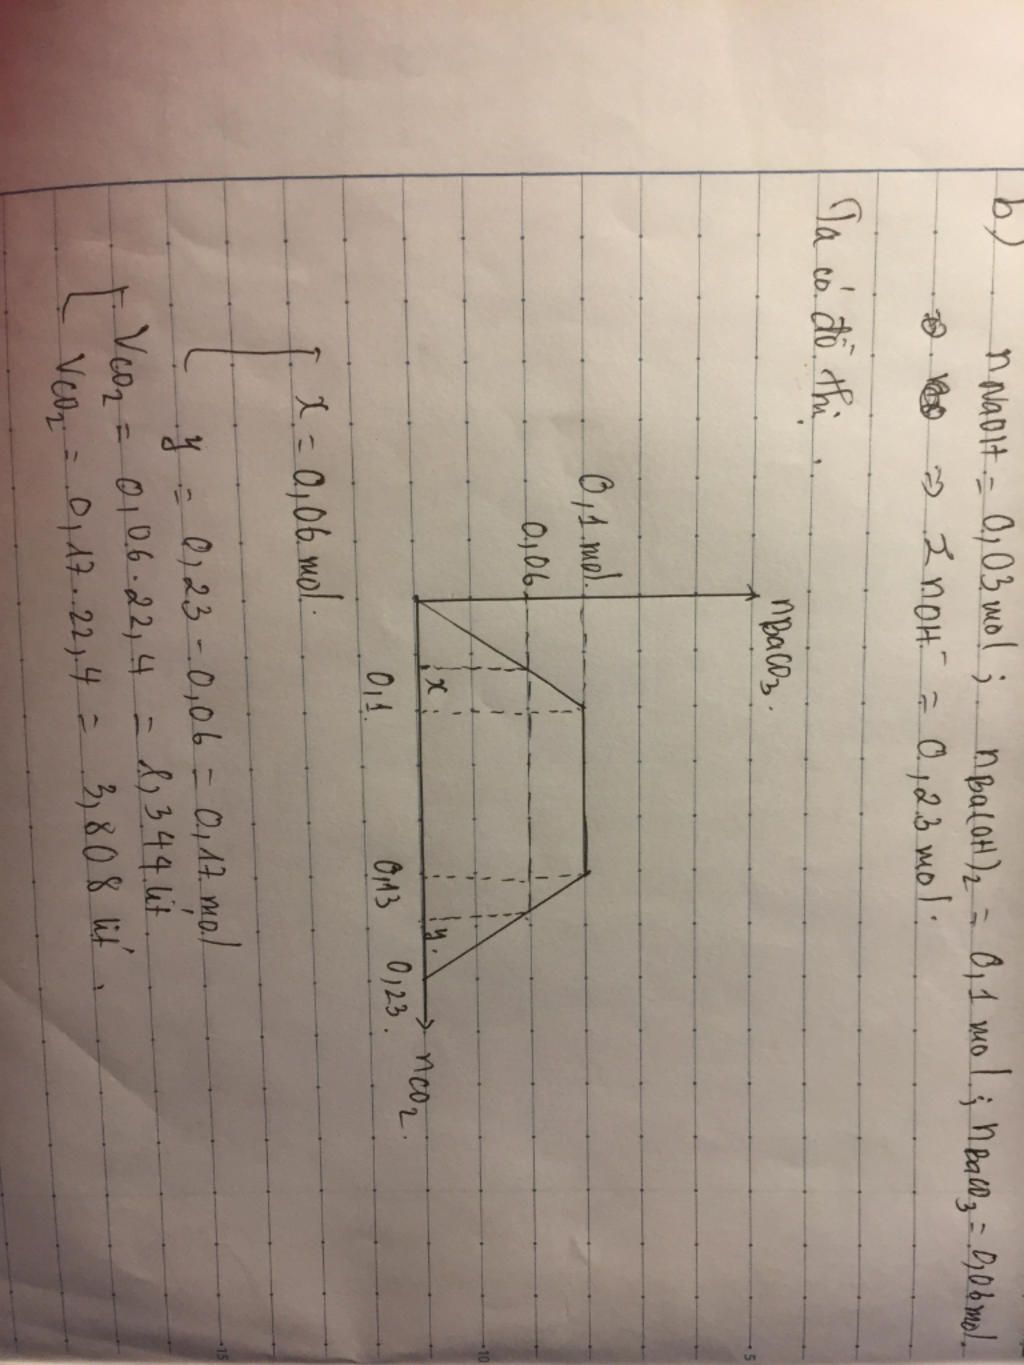 b) nNaOH = 0,03 mol ; nBa(OH)₂ = 0,1 mol ; nBaCO₃ = 0,06 mol
⇒ ⇒ Σ nOH⁻ = 0,23 mol.
Ta có đồ thị.
nBaCO₃.
0,1 mol.
0,06
x
y.
0,1.
0,13
0,23.
nCO₂.
x = 0,06 mol.
y = 0,23 - 0,06 = 0,17 mol
VCO₂ = 0,06.22,4 = 1,344 lít
VCO₂ = 0,17.22,4 = 3,808 lít.
5
10
15